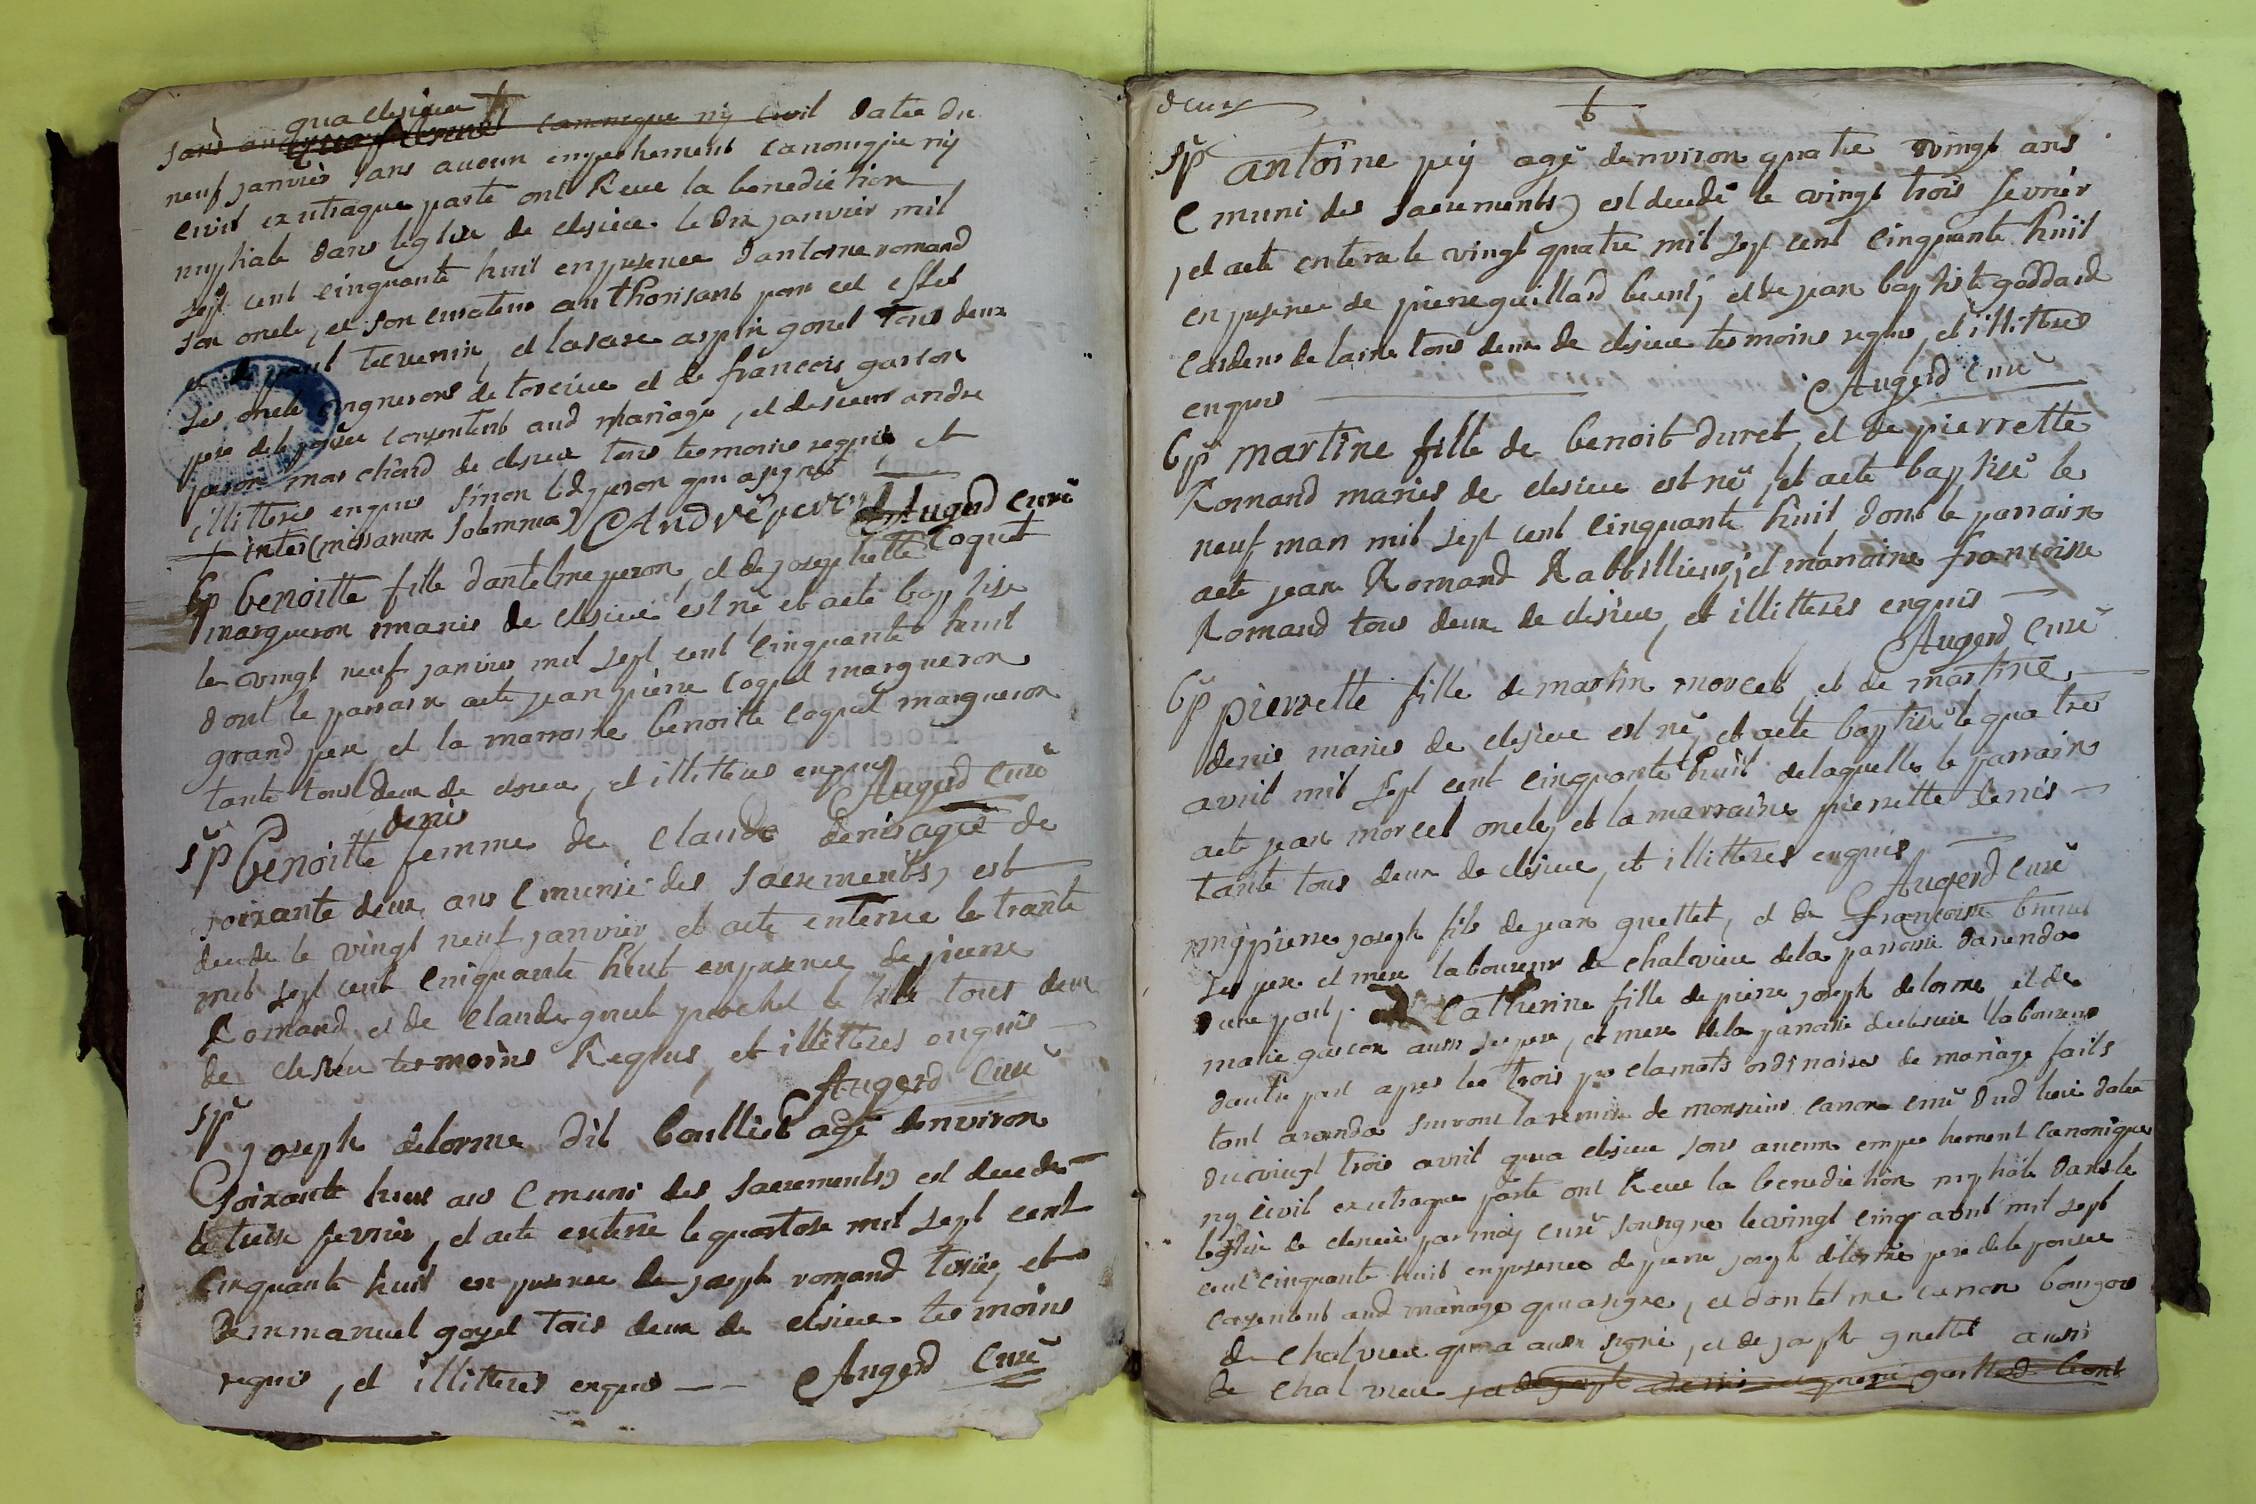 qua clesieu
canonique ny civil datée du
neuf janvier sans aucun empechement canonique ny
civil ex utraque parte ont Receu la benediction
nuptiale dans leglise de clesieu le dix janvier mil
sept cent cinquante huit en presence dantoine romand
son oncle, et son curateur authorisant pour cet effet
et de tevenin, et lasare aspin gonet tous deux
ses oncle vignerons de torcieu et de françois garson
pere de le pousee consentent aud mariage, et de sieur andre
peron marchand de clesieu tous temoins requis et
illitteres enquis sinon led peron qui a signé
+ inter (missarum solemnia) André peron Augerd Curé
bp benoitte fille dantelme peron, et de josephette Coquet
margueron maries de clesieu est né et aeté baptisé
le vingt neuf janvier mil sept cent cinquante huit
dont le parrain aeté jean pierre coquet margueron
grand pere et la marraine benoitte coquet margueron
tante tous deux de clesieu, et illitteres enquis
Augerd Curé
denis
sp benoitte femme de claude denis agée de
soixante deux ans (munie des sacrements) est
decede le vingt neuf janvier et aeté enterrée le trante
mil sept cent cinquante huit en presence de pierre
Romand et de claude gruet tous deux
de clesieu temoins Requis, et illitteres enquis
Augerd Curé
sp joseph delorme dit boulliet agé denviron
soixante huit ans (muni des sacrements) est decedé
le treize fevrier, et aeté enterré le quatorze mil sept cent
cinquante huit en presence de joseph romand et
Demmanuel goyet tous deux de clesieu temoins
requis, et illitteres enquis -- Augerd Curé
deux
6
sp antoine pey agé denviron quatre vingt ans
(muni des sacrements) est decedé le vingt trois fevrier
et aeté enterré le vingt quatre mil sept cent cinquante huit
en presence de pierre guillard et de jean baptiste goddard
cardeurs de laine tous deux de clesieu temoins requis, et illitteres
enquis Augerd Curé
bp martine fille de benoit duret, et de pierrette
Romand maries de clesieu est né, et aeté baptisé le
neuf mars mil sept cent cinquante huit dont le parrain
aeté jean Romand Rabbillieur, et marraine françoise
Romand tous deux de clesieu, et illitteres enquis
Augerd Curé
bp pierrette fille de martin morcel, et de martine
denis maries de clesieu est né, et aeté baptisé le quatre
avril mil sept cent cinquante huit de laquelle le parrain
aeté jean morcel oncle, et la marraine pierrette denis
tante tous deux de clesieu, et illitteres enquis
Augerd Curé
mg pierre joseph fils de jean guettet, et de françoise brunet
ses pere et mere laboureur de chalvieu de la parroisse daranda
dune part, Catherine fille de pierre joseph delorme et de
marie garcon aussi ses pere, et mere de la parroisse de clesieu laboureur
dautre part apres les trois proclamats ordinaires de mariage faits
tant aranda suivant la remise de monsieur canon curé dud lieu datée
du vingt trois avril qua clesieu sans aucun empechement canonique
ny civil ex utraque parte ont Receu la benediction nuptiale dans le
leglise de clesieu par moy curé soussigné le vingt cinq avril mil sept
cent cinquante huit en presence de pierre joseph delorme pere de le pousee
consentent aud mariage qui a signé, et dantelme canon bourgois
de chalvieu qui a aussi signé, et de joseph guettet aussi
de chalvieu